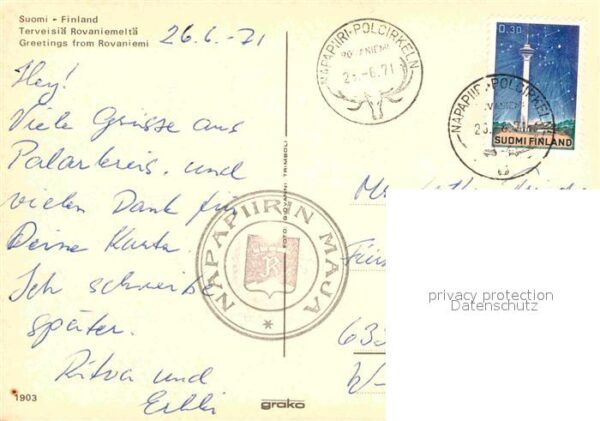 Suomi - Finland
Terveisiä Rovaniemeltä
Greetings from Rovaniemi
26.6.-71
Hey!
Viele Grüsse aus
Polarkreis, und
vielen Dank für
Deine Karte.
Ich schreibe
später.
Ritva und
Erkki
1903
grako
FOTO: GIOVANNI TRIMBOLI
NAPAPIIRI-POLCIRKELN
ROVANIEMI
-6.71
0.30
SUOMI FINLAND
NAPAPIIRI-POLCIRKELN
ROVANIEMI
NAPAPIIRIN MAJA
R
633
W-
privacy protection
Datenschutz